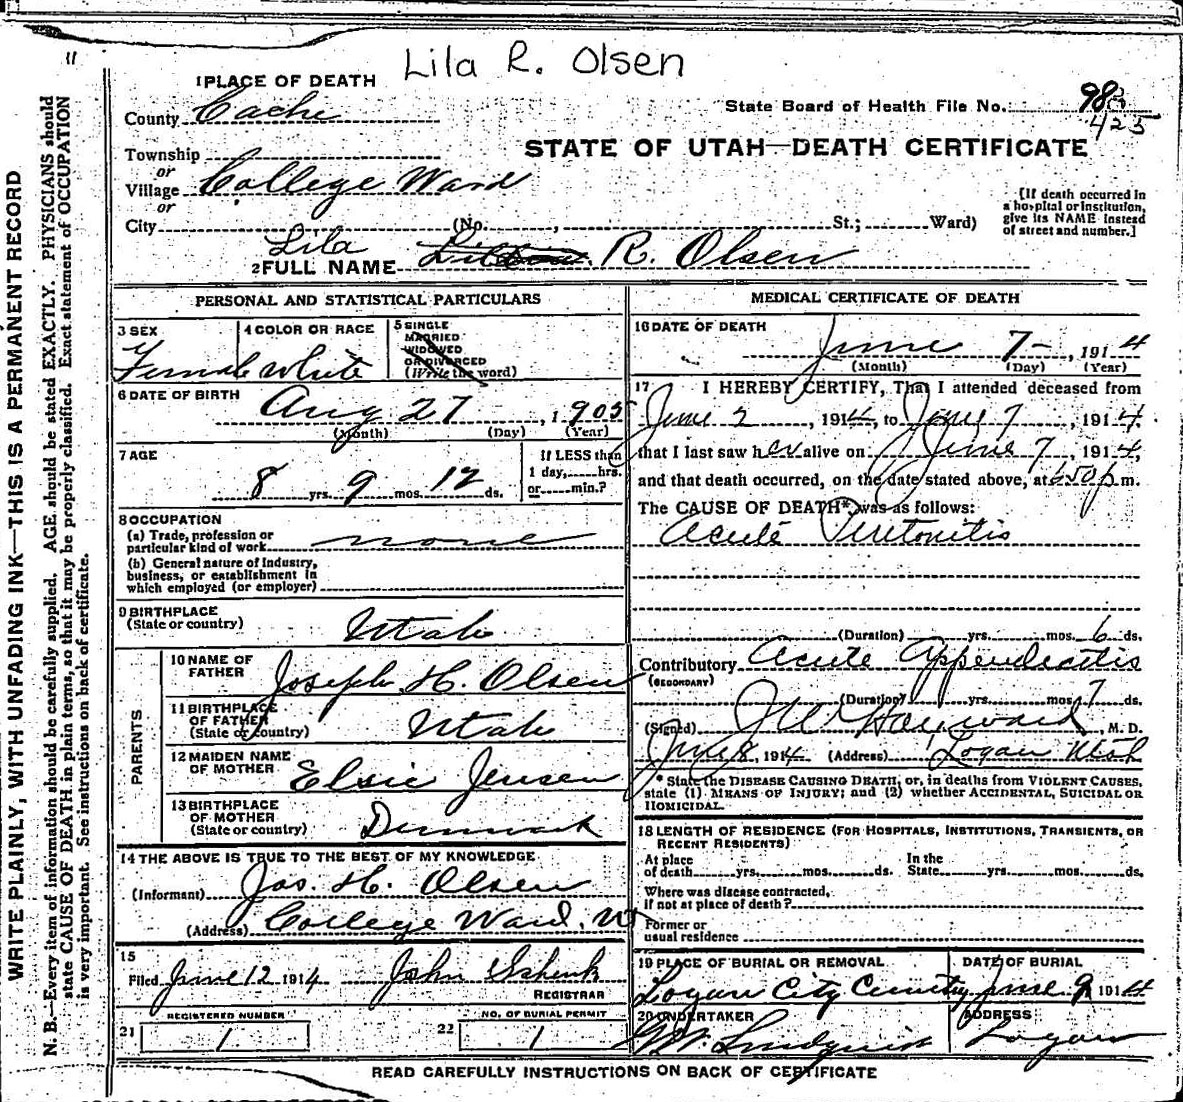 11
Lila R. Olsen
1 PLACE OF DEATH
County Cache
State Board of Health File No. 98
425
STATE OF UTAH—DEATH CERTIFICATE
Township
or
Village College Ward
or
City (No. , St.; Ward)
[If death occurred in
a hospital or institution,
give its NAME instead
of street and number.]
Lila
2 FULL NAME R. Olsen
PERSONAL AND STATISTICAL PARTICULARS
3 SEX
Female
4 COLOR OR RACE
White
5 SINGLE
MARRIED
WIDOWED
OR DIVORCED
(Write the word)
6 DATE OF BIRTH
Aug 27, 1905
(Month) (Day) (Year)
7 AGE
8 yrs. 9 mos. 12 ds.
If LESS than
1 day, hrs.
or min.?
8 OCCUPATION
(a) Trade, profession or
particular kind of work none
(b) General nature of Industry,
business, or establishment in
which employed (or employer)
9 BIRTHPLACE
(State or country) Utah
PARENTS
10 NAME OF
FATHER Joseph H. Olsen
11 BIRTHPLACE
OF FATHER
(State or country) Utah
12 MAIDEN NAME
OF MOTHER Elsie Jensen
13 BIRTHPLACE
OF MOTHER
(State or country) Denmark
14 THE ABOVE IS TRUE TO THE BEST OF MY KNOWLEDGE
(Informant) Jos. H. Olsen
(Address) College Ward.
15
Filed June 12 1914 John Schenk
REGISTRAR
REGISTERED NUMBER
21 1
NO. OF BURIAL PERMIT
22 1
MEDICAL CERTIFICATE OF DEATH
16 DATE OF DEATH
June 7-, 1914
(Month) (Day) (Year)
17 I HEREBY CERTIFY, That I attended deceased from
June 2, 1914, to June 7, 1914.
that I last saw h er alive on June 7, 1914,
and that death occurred, on the date stated above, at 6:50 p m.
The CAUSE OF DEATH* was as follows:
Acute Peritonitis
(Duration) yrs. mos. 6 ds.
Contributory Acute Appendicitis
(SECONDARY)
(Duration) yrs. mos. 7 ds.
(Signed) Hayward, M. D.
June 8, 1914 (Address) Logan Utah
* State the DISEASE CAUSING DEATH, or, in deaths from VIOLENT CAUSES,
state (1) MEANS OF INJURY; and (2) whether ACCIDENTAL, SUICIDAL OR
HOMICIDAL.
18 LENGTH OF RESIDENCE (FOR HOSPITALS, INSTITUTIONS, TRANSIENTS, OR
RECENT RESIDENTS)
At place
of death yrs. mos. ds.
In the
State yrs. mos. ds.
Where was disease contracted,
if not at place of death?
Former or
usual residence
19 PLACE OF BURIAL OR REMOVAL
Logan City Cemetery
DATE OF BURIAL
June 9, 1914
20 UNDERTAKER
Lindquist
ADDRESS
Logan
READ CAREFULLY INSTRUCTIONS ON BACK OF CERTIFICATE
WRITE PLAINLY, WITH UNFADING INK—THIS IS A PERMANENT RECORD
N. B.—Every item of information should be carefully supplied. AGE should be stated EXACTLY. PHYSICIANS should
state CAUSE OF DEATH in plain terms, so that it may be properly classified. Exact statement of OCCUPATION
is very important. See instructions on back of certificate.